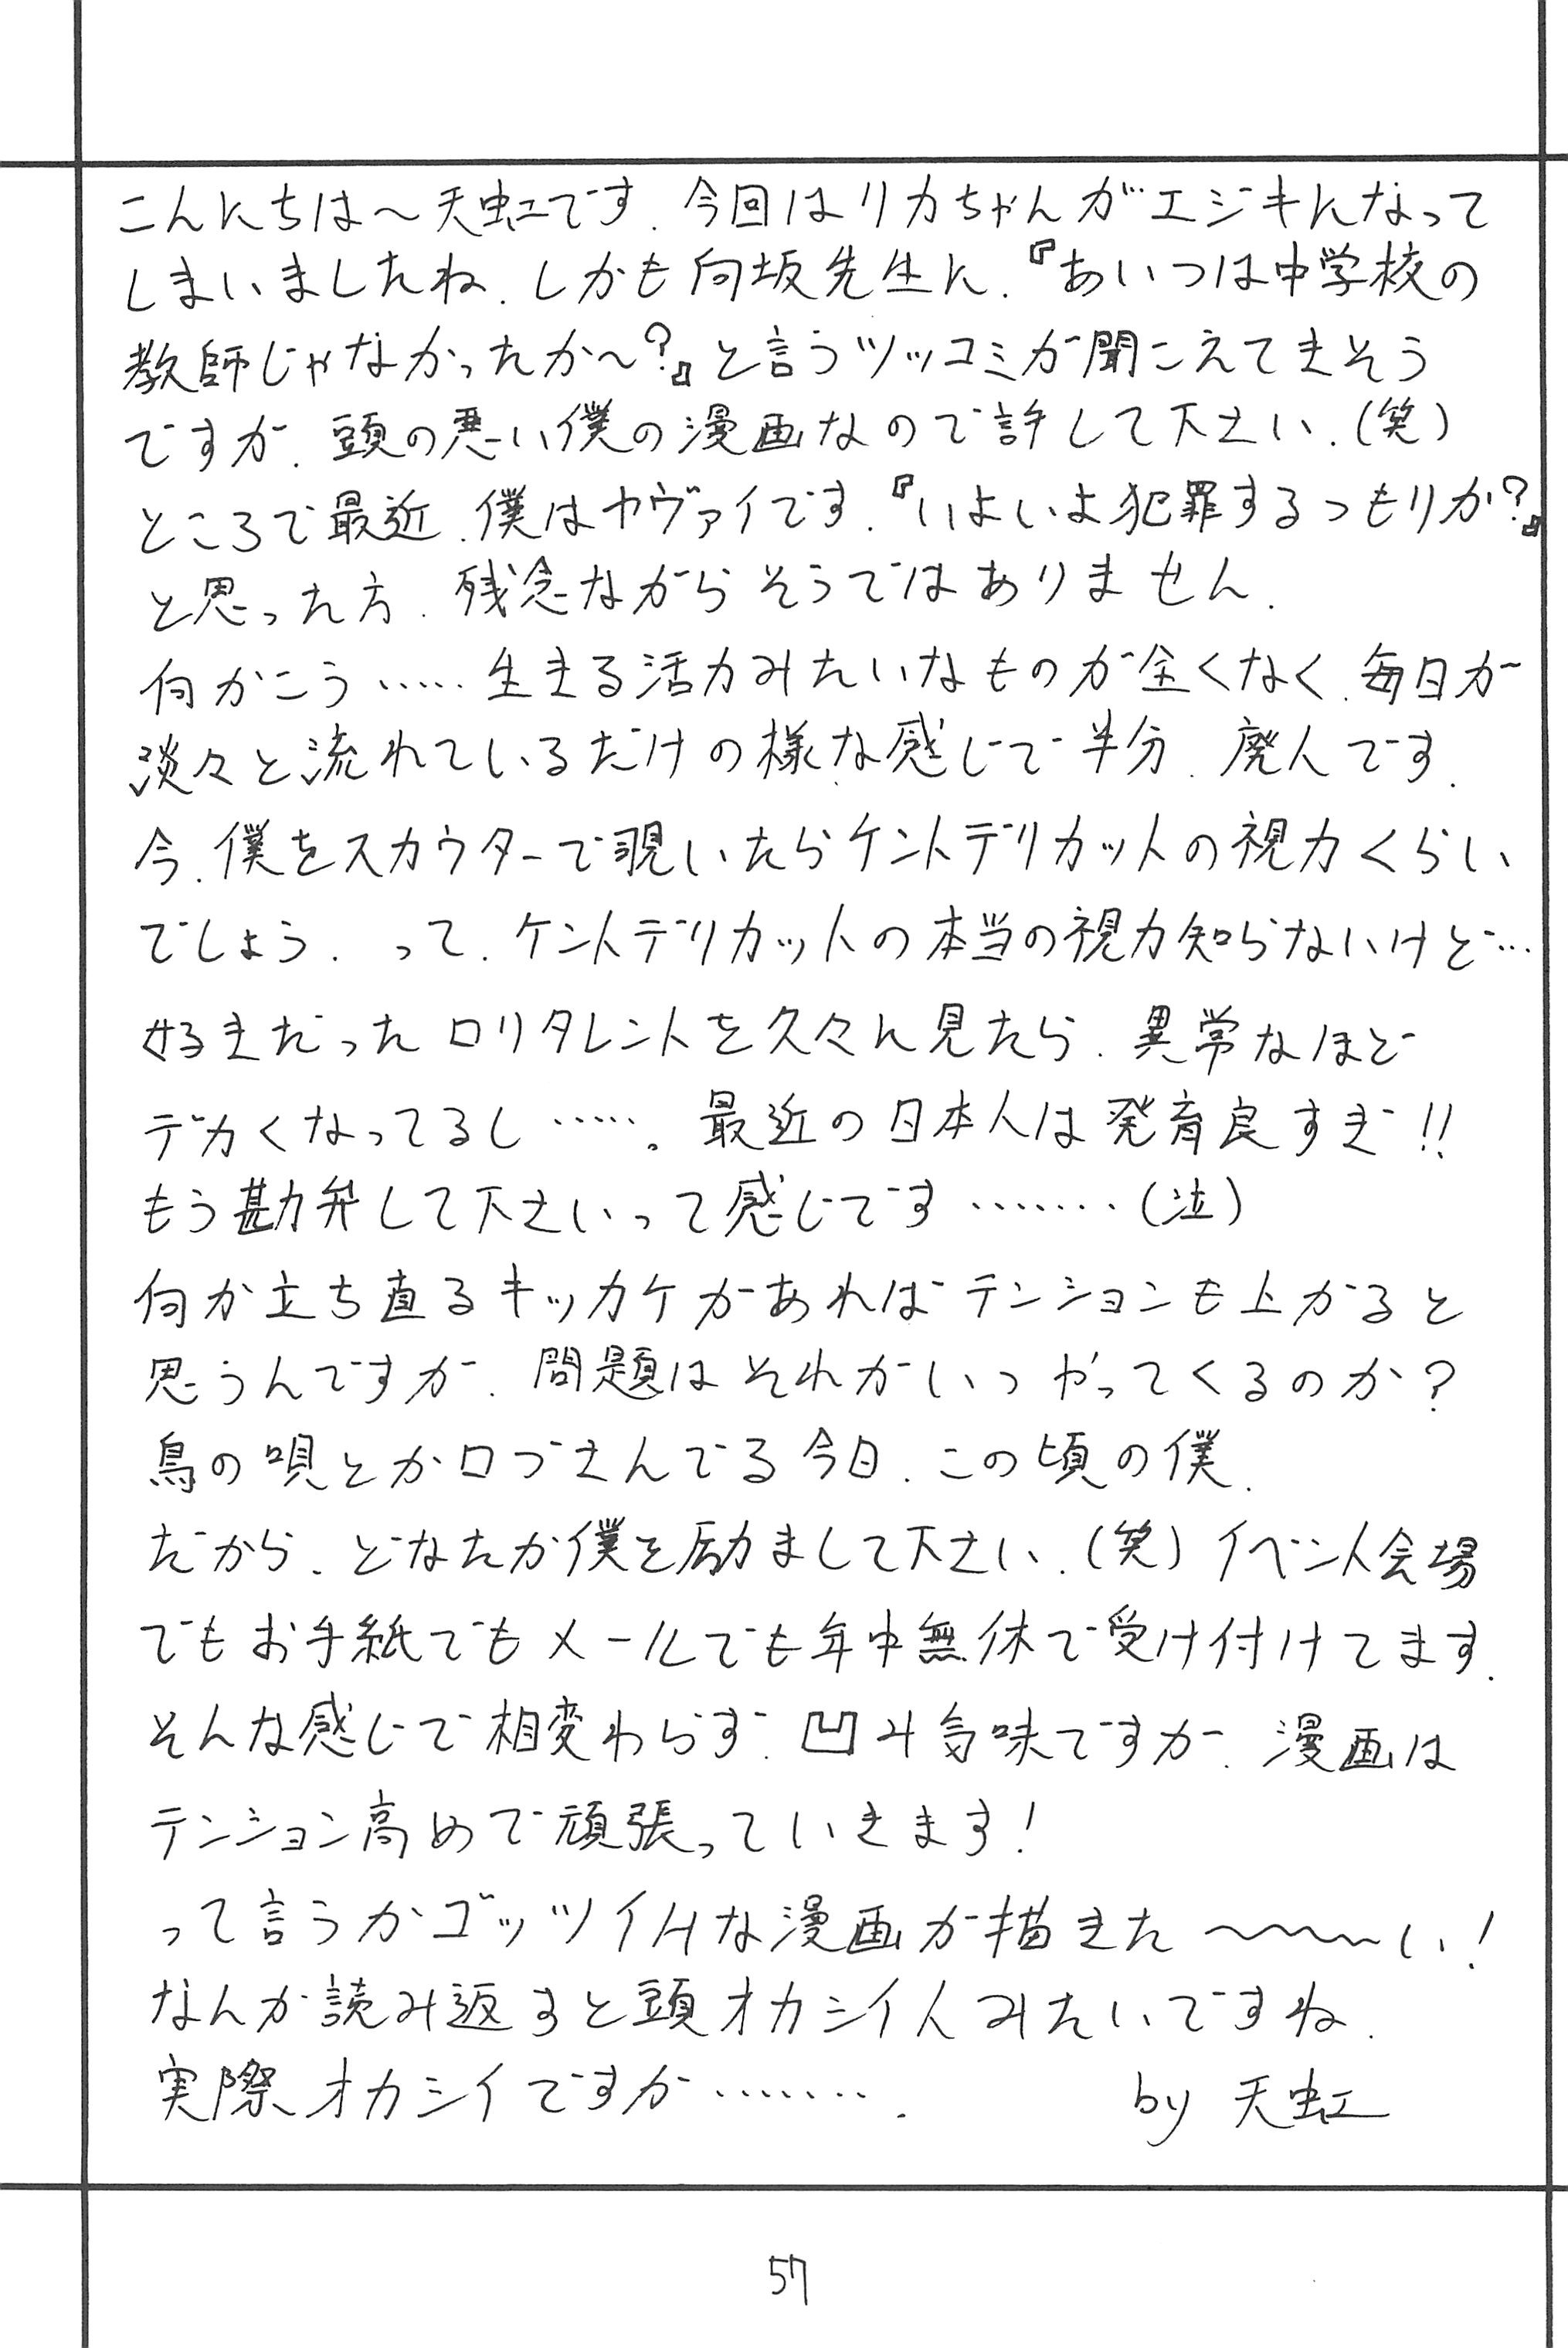 こんにちは～天虹です.今回はリカちゃんがエジキになって
しまいましたね.しかも向坂先生に.『あいつは中学校の
教師じゃなかったか～?』と言うツッコミが聞こえてきそう
ですが.頭の悪い僕の漫画なので許して下さい.(笑)
ところで最近.僕はヤヴァイです.『いよいよ犯罪するつもりか?』
と思った方.残念ながらそうではありません.
何かこう……生きる活力みたいなものが全くなく.毎日が
淡々と流れているだけの様な感じで半分.廃人です.
今.僕をスカウターで覗いたらケントデリカットの視力くらい
でしょう.って.ケントデリカットの本当の視力知らないけど…
好きだったロリタレントを久々に見たら.異常なほど
デカくなってるし……。最近の日本人は発育良すぎ!!
もう勘弁して下さいって感じです………(泣)
何か立ち直るキッカケがあればテンションも上がると
思うんですが.問題はそれがいつやってくるのか?
鳥の唄とか口づさんでる今日.この頃の僕.
だから.どなたか僕を励まして下さい.(笑)イベント会場
でもお手紙でもメールでも年中無休で受け付けてます.
そんな感じで相変わらず.凹み気味ですが.漫画は
テンション高めで頑張っていきます!
って言うかゴッツイHな漫画が描きた～～～い!
なんか読み返すと頭オカシイ人みたいですね.
実際オカシイですが…….
by 天虹
57